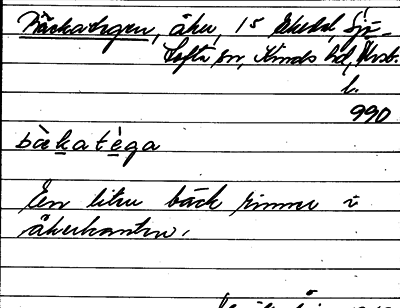 Bäckategen, åker, 15 Ekedal, Sjö-
tofta sn, Kinds hd, Älvsb.
l.
990
bàkatèga
En liten bäck rinner i
åkerkanten.